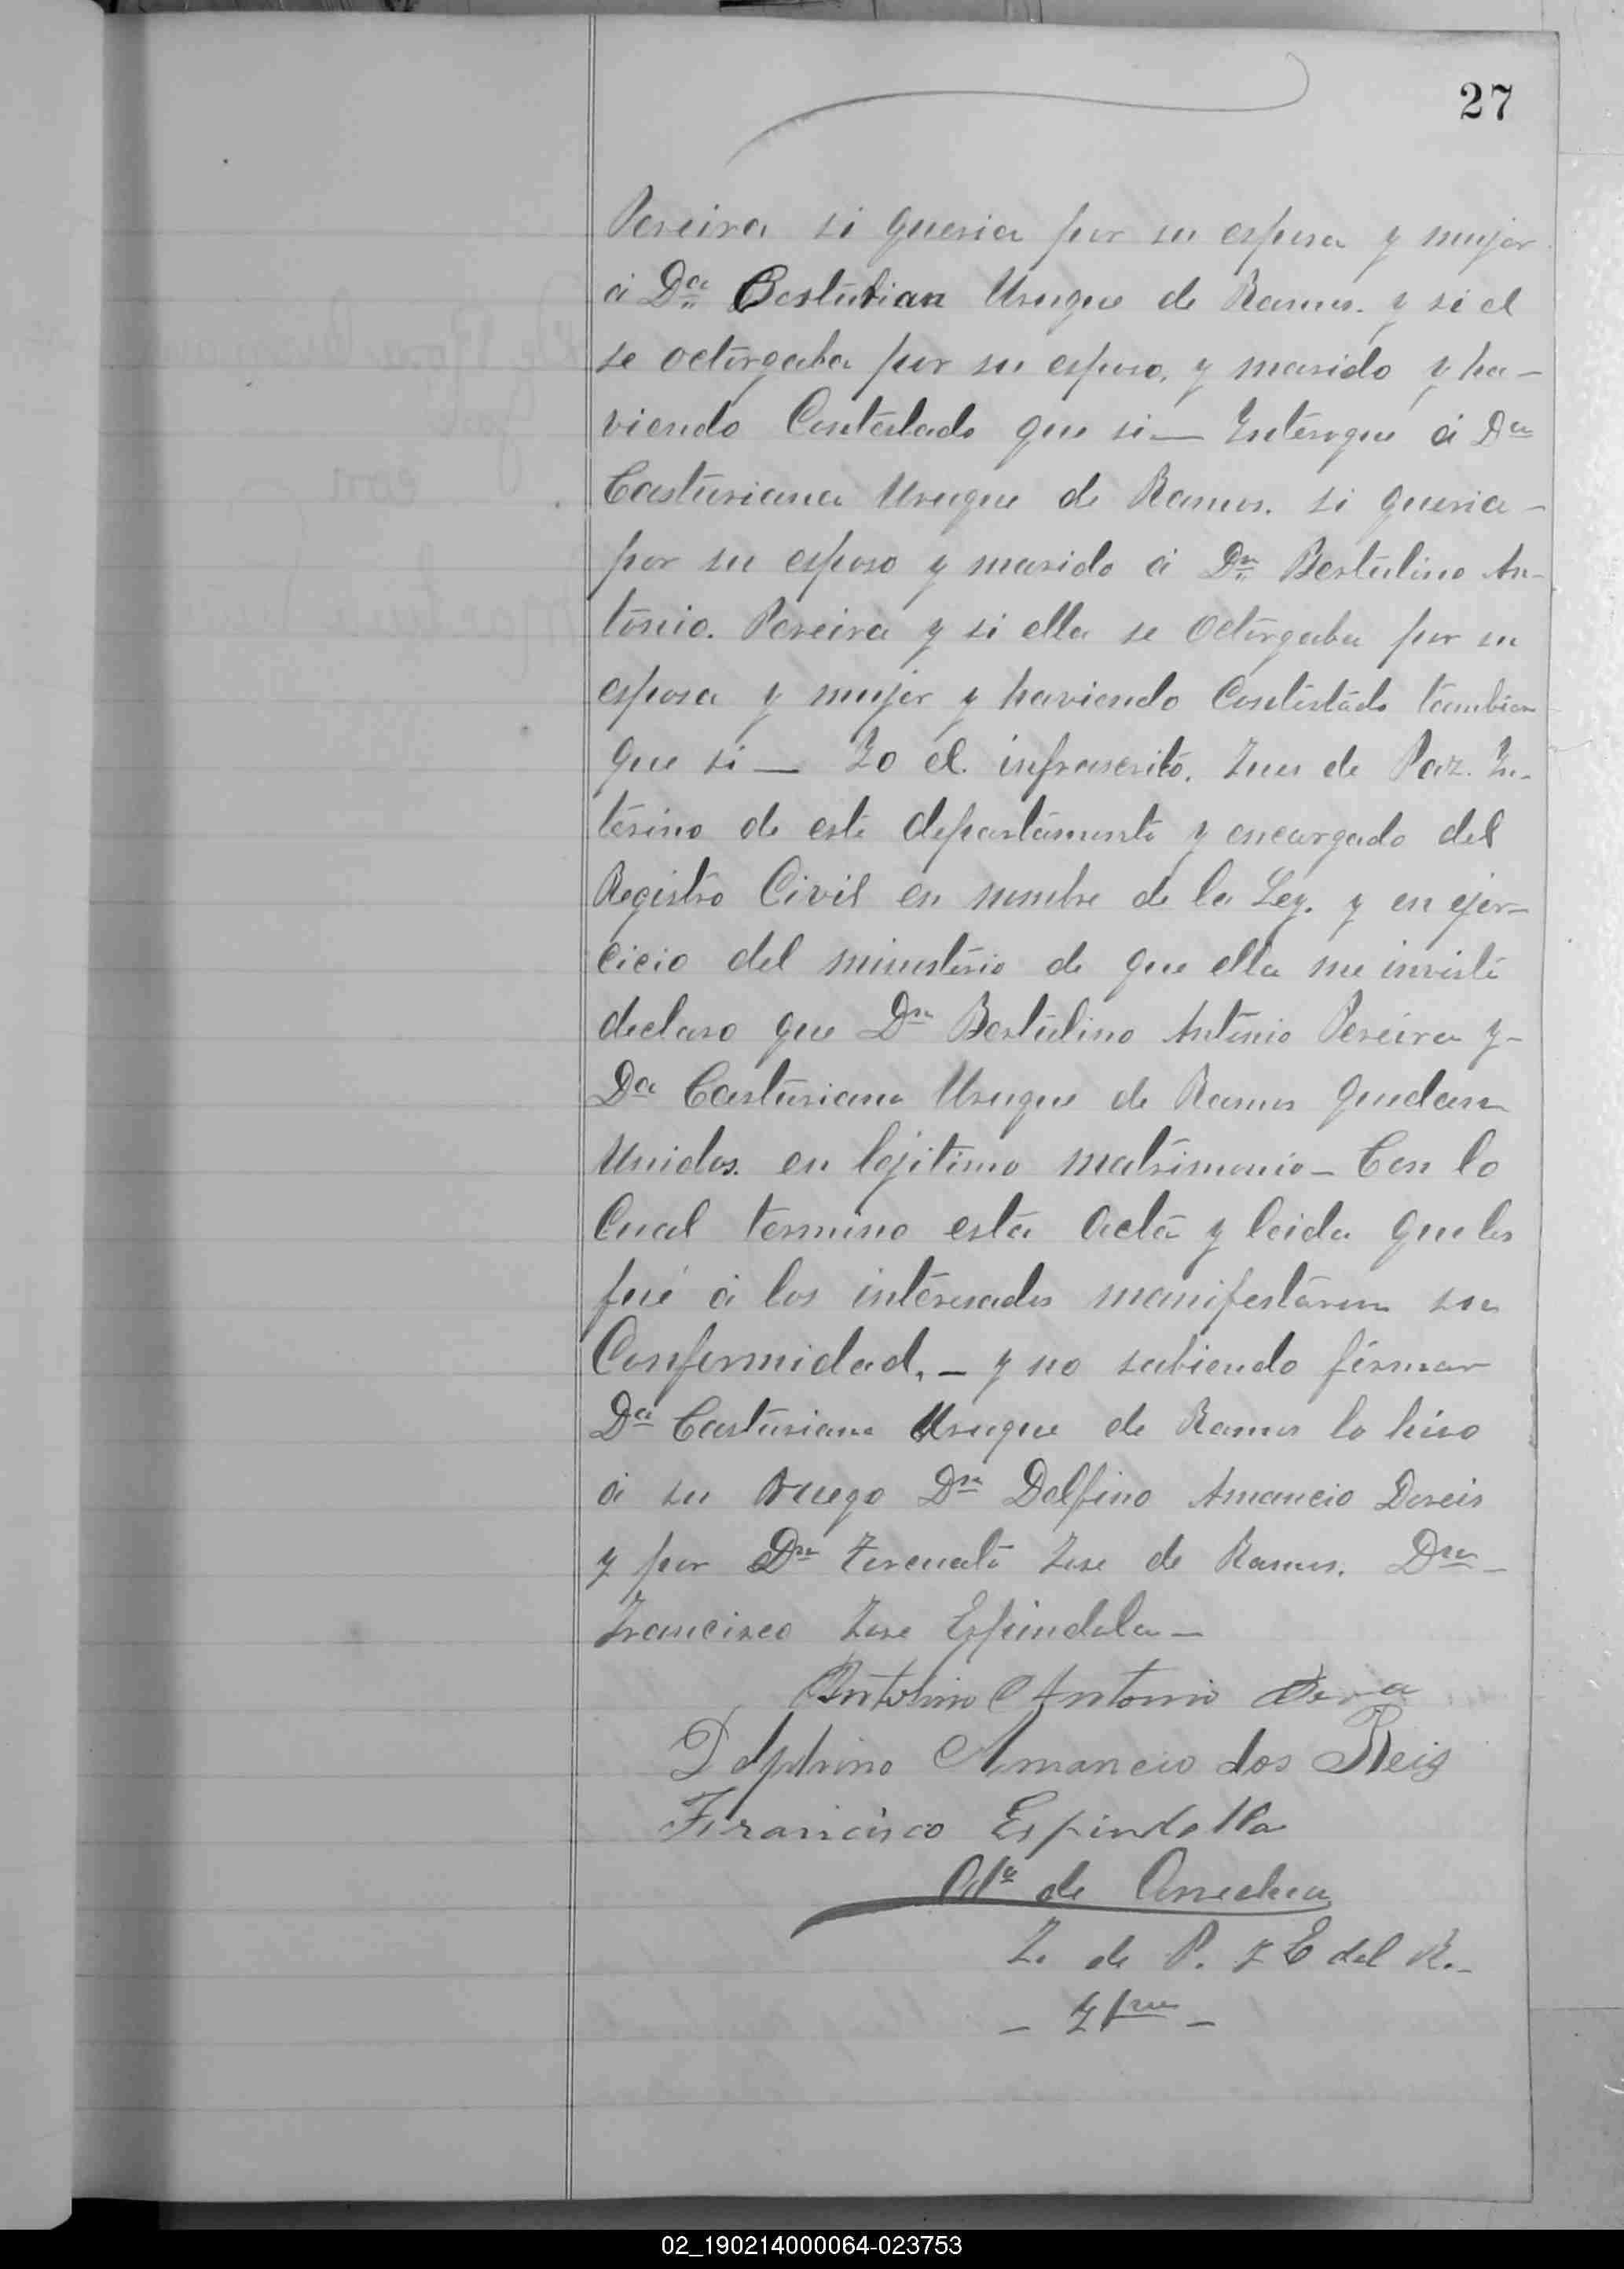 27
Pereira si queria por su esposa y mujer
á Da Casturian Urugue de Ramos. y si el
se octorgaba por su esposo, y marido y ha-
viendo Contestado que si — Interogue á Da
Casturiana Urugue de Ramos. si queria -
por su esposo y marido á Dn Bertulino An-
tonio. Pereira y si ella se Octorgaba por su
esposa y mujer y haviendo Contestado tambien
que si — Yo el infrascrito. Jues de Paz. In-
terino de este departamento y encargado del
Registro Civil en nombre de la Ley. y en ejer-
cicio del ministerio de que ella me inviste
declaro que Dn Bertulino Antonio Pereira y -
Da Casturiana Urugue de Ramos quedan
Unidos. en lejitimo matrimonio - Con lo
Cual termino esta Acta y leida que les
fué á los interesados manifestaron su
Conformidad, - y no sabiendo firmar
Da Casturiana Urugue de Ramos lo hiso
á su ruego Dn Delfino Amancio Doreis
y por Dn Torcuato Jose de Ramos. Dn -
Francisco Jose Espindola -
Antonio
Delphino Amancio dos Reis
Francisco Espindolla
de
J. de P. y E del R. -
02_190214000064-023753